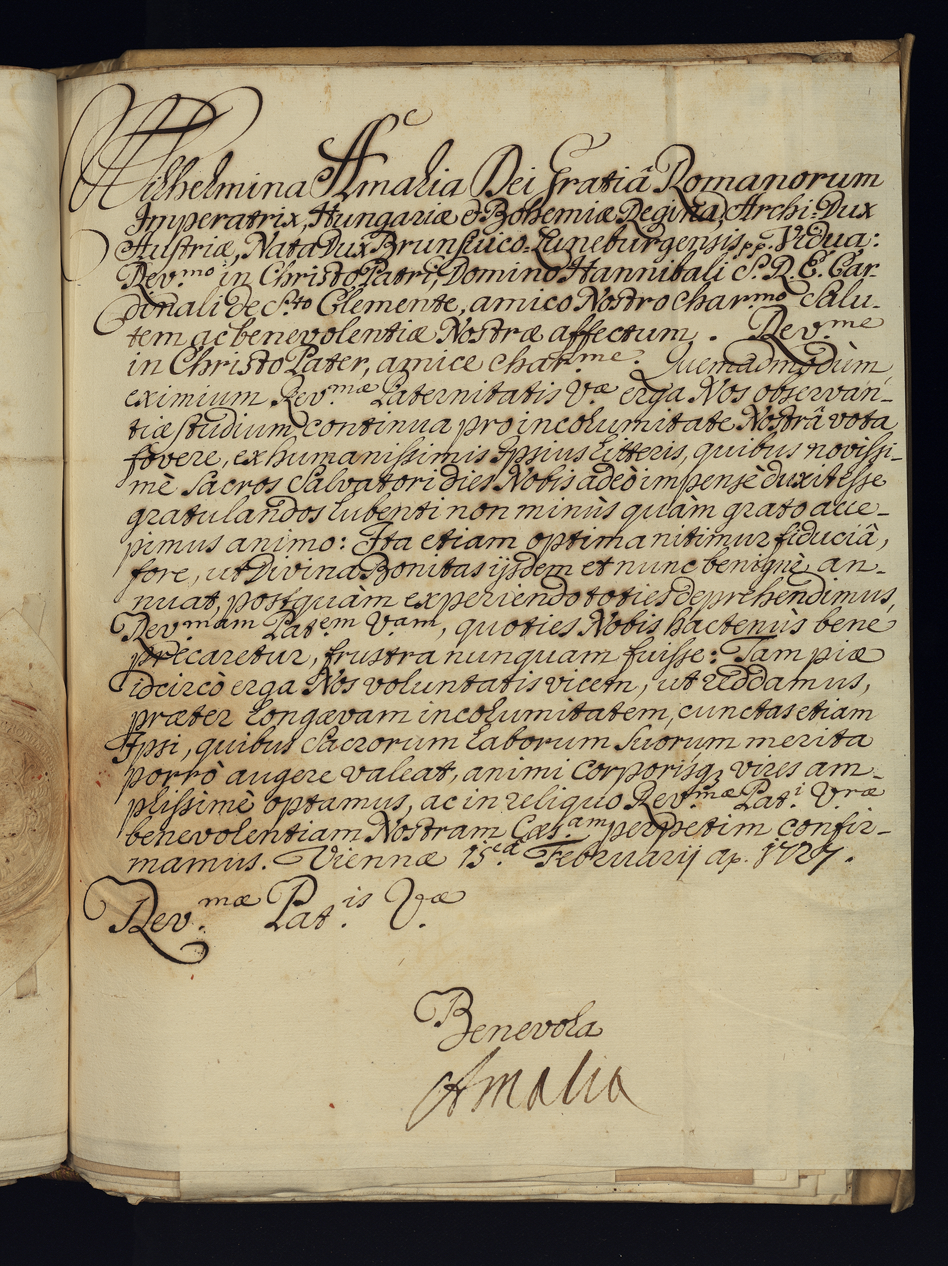 Wilhelmina Amalia Dei Gratiâ Romanorum
Imperatrix, Hungariæ & Bohemiæ Regina, Archi-Dux
Austriæ, Nata Dux Brunsuico-Luneburgensis pp. Vidua:
Rev.mo in Christo Patri, Domino Hannibali S. R. E. Car-
dinali de S.to Clemente, amico Nostro char.mo Salu-
tem ac benevolentiæ Nostræ affectum. Rev.me
in Christo Pater, amice char.me. Quemadmodùm
eximium Rev.mæ Paternitatis V.æ erga Nos observan-
tiæ studium, continua pro incolumitate Nostrâ vota
fovere, ex humanissimis Ipsius Litteris, quibus novissi-
mè Sacros Salvatori dies Nobis adeò impensè duxit esse
gratulandos lubenti non minùs quàm grato acce-
pimus animo: Ita etiam optima nitimur fiduciâ,
fore, ut Divina Bonitas ijsdem et nunc benignè an-
nuat, postquàm experiendo toties deprehendimus,
Rev.mam Pat.em V.am, quoties Nobis hactenùs bene
precaretur, frustra nunquam fuisse: Tam piæ
idcircò erga Nos voluntatis vicem, ut reddamus,
præter longævam incolumitatem, cunctas etiam
Ipsi, quibus Sacrorum Laborum Suorum merita
porrò augere valeat, animi corporisq₃ vires am-
plissimè optamus, ac in reliquo Rev.mæ Pat.i V.ræ
benevolentiam Nostram Cæs.am perpetim confir-
mamus. Viennæ 15.câ Februarij ap. 1727.
Rev.mæ Pat.is V.æ
Benevola
Amalia